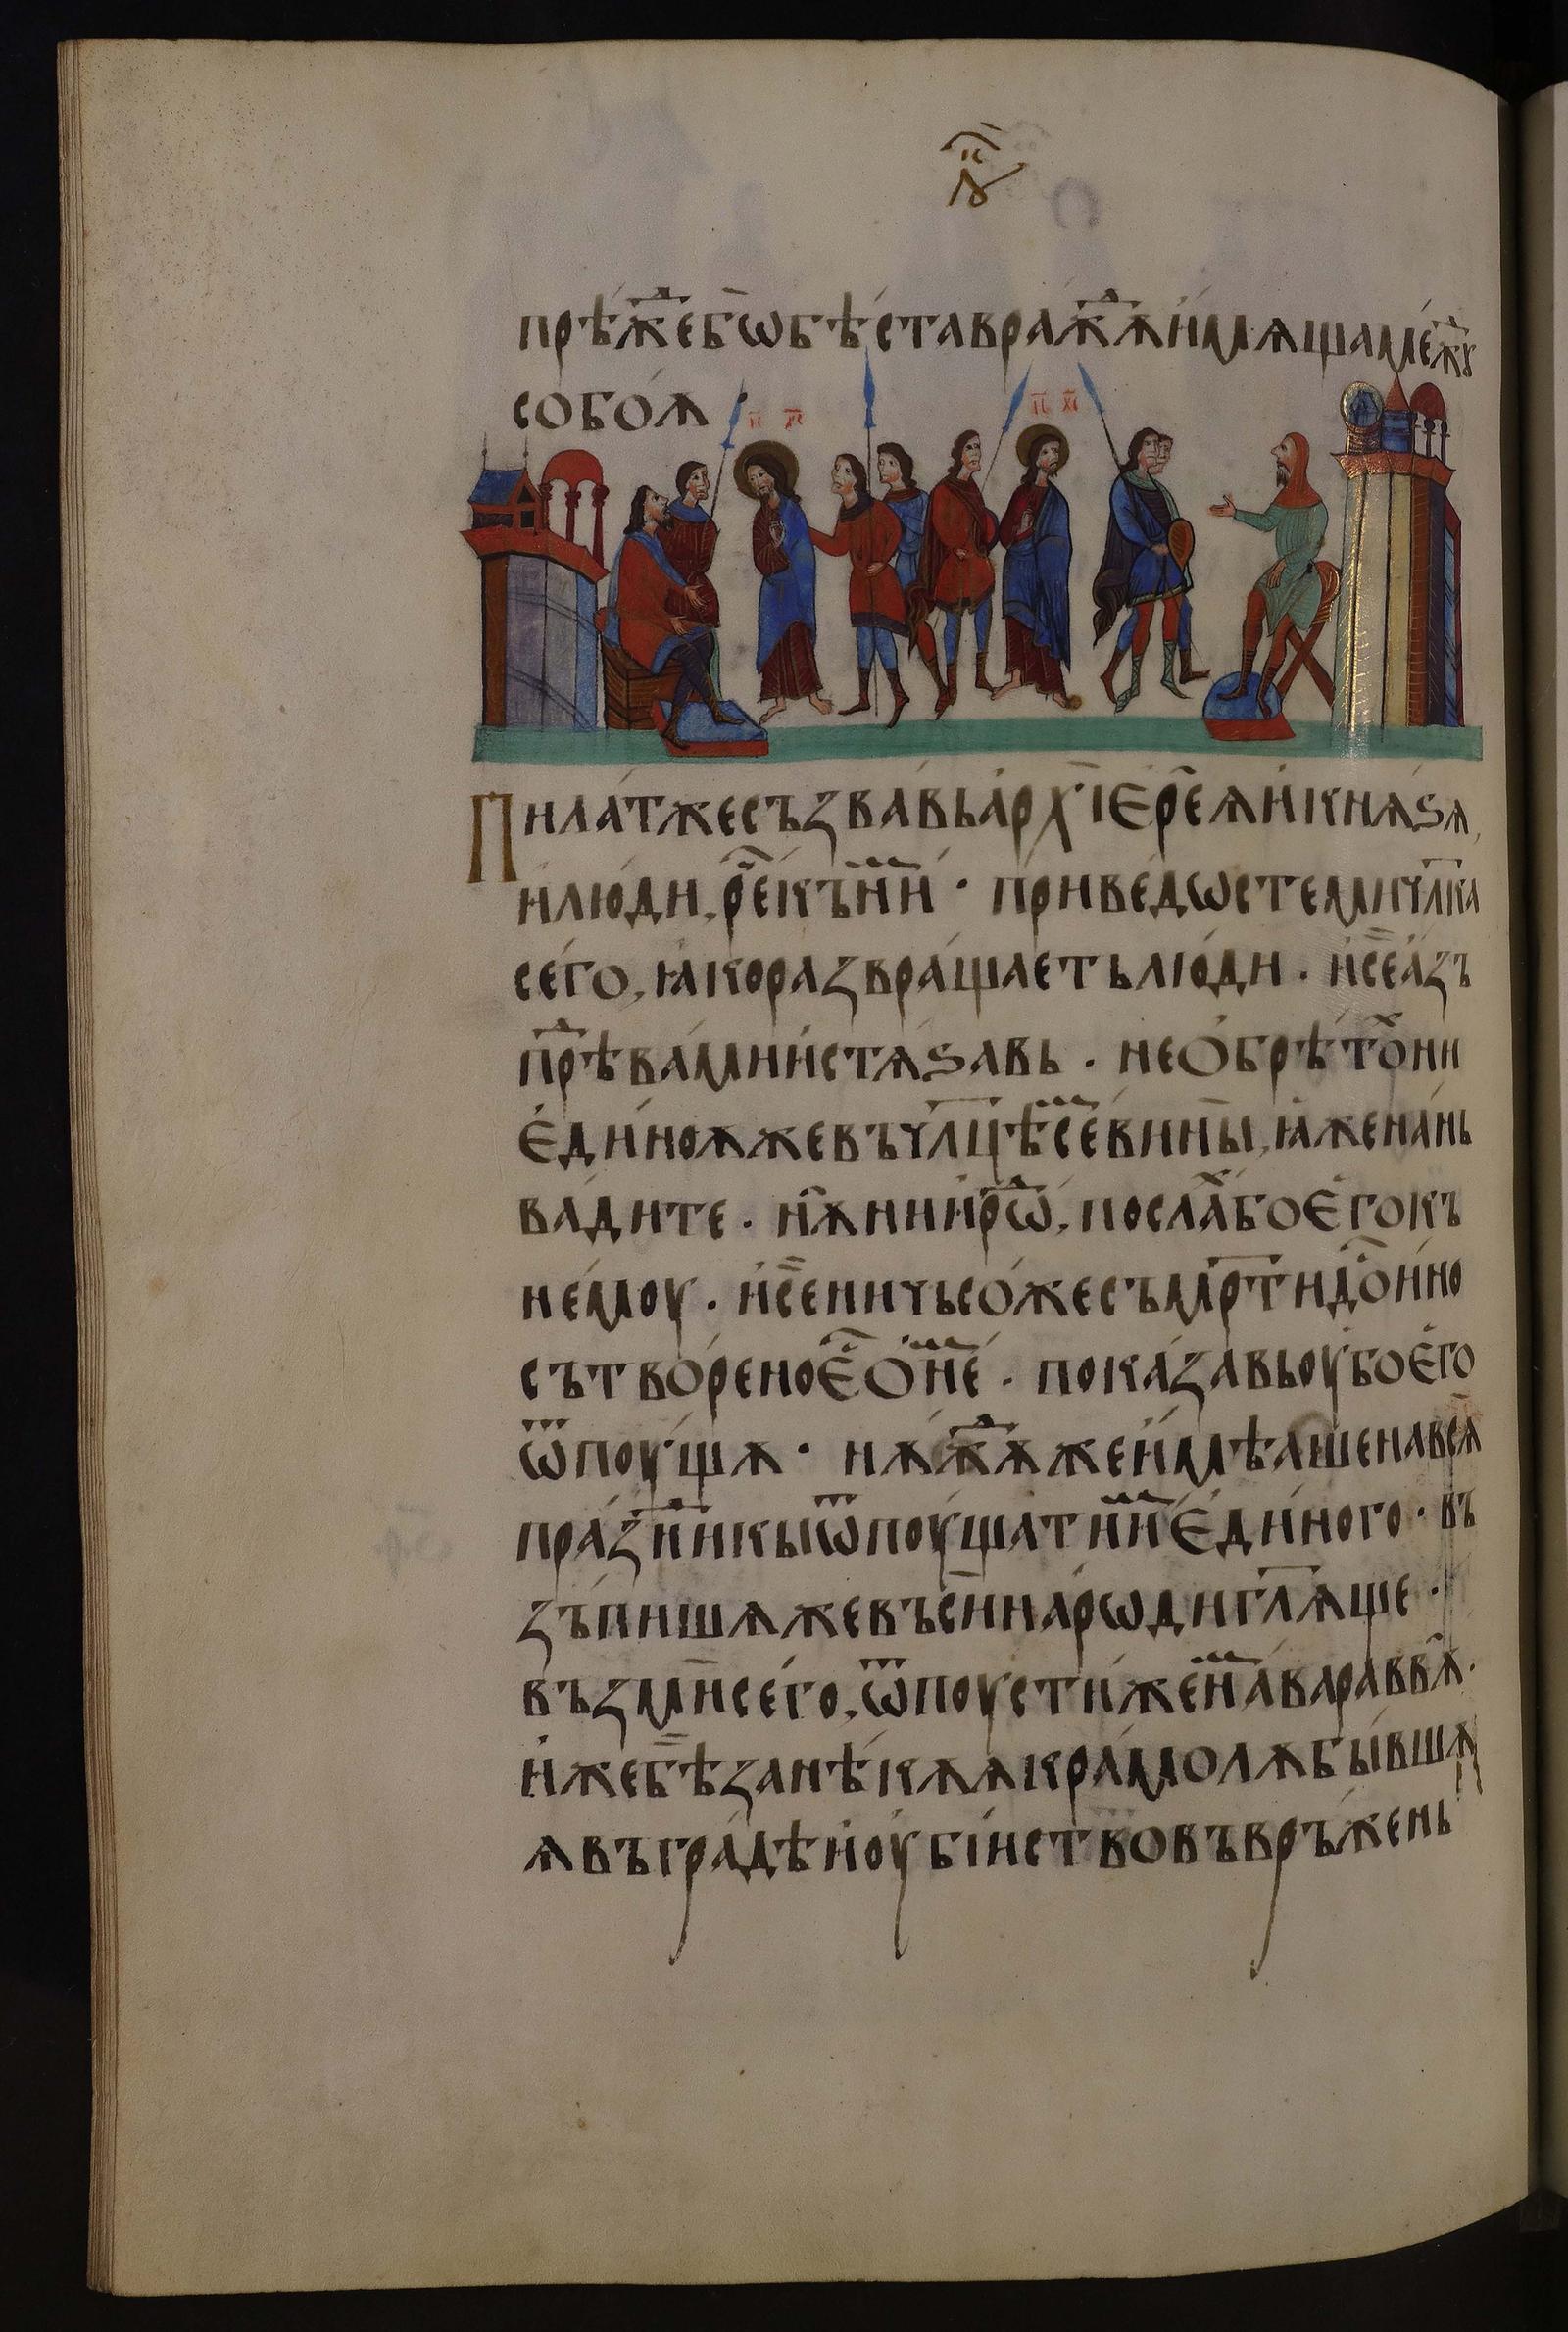 прѣжⷣебѡ҃бѣставражⷣѫи҆мѧщамежⷣꙋ
собоѫ
і҃с х҃с
і҃с х҃с
Пилатжесъꙁвавьархїерⷭеѧ҆икнѧѕѧ,
и҆люди, рⷭекън҄и · приведѡстемичл҃ка
сего, ꙗкораꙁвращаетьлюди · и҆се҆аꙁъ
прⷣѣвамиистѧѕавь · необрѣтоⷯни
є҆диноѫжевъчл҃цѣсⷨевины҆, ꙗженань
вадите · нѫⷭниирⷣѡ, послаⷯбоє҆гокъ
немоу · и҆сеничьсожесъмрⷬ҇тидⷭои҆но
сътвореноєⷭ҇о҆нⷨе · покаꙁавьоубоє҆го
ѿпоущѫ · нѫжⷣѫжеи҆мѣашенавсѧ
праꙁⷣникыѿпоущатииⷨє҆диного · въ
ꙁъпишѫжевъсинародигл҃ѫще ·
въꙁмисего, ѿпоустижен҄аⷨвараввѫ ·
и҆жебѣꙁанѣкѫѧкрамолѫбывшѫ
ѧвъградѣи҆оубїиствовъврьжень